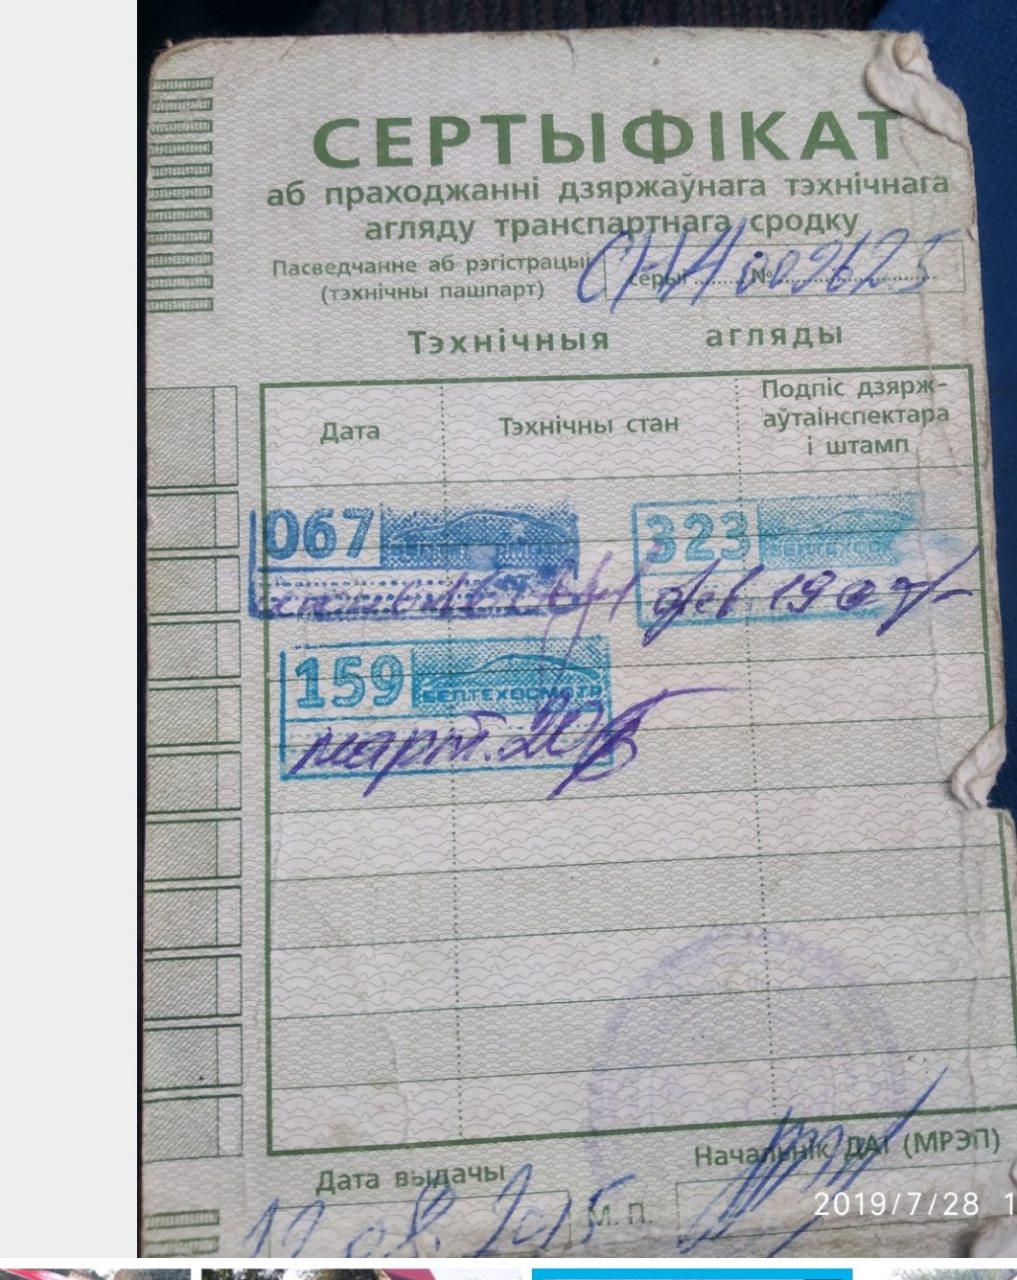 СЕРТЫФІКАТ
аб праходжанні дзяржаўнага тэхнічнага
агляду транспартнага сродку
Пасведчанне аб рэгістрацыі
(тэхнічны пашпарт)
серыі № СНА 002625
Тэхнічныя агляды
Дата
Тэхнічны стан
Подпіс дзярж-
аўтаінспектара
і штамп
067
323
БЕЛТЕХОС
159
БЕЛТЕХОСМОТР
март.
Дата выдачы
Начальнік ДАІ (МРЭП)
19 08. 2015
М. П.
2019/7/28 1